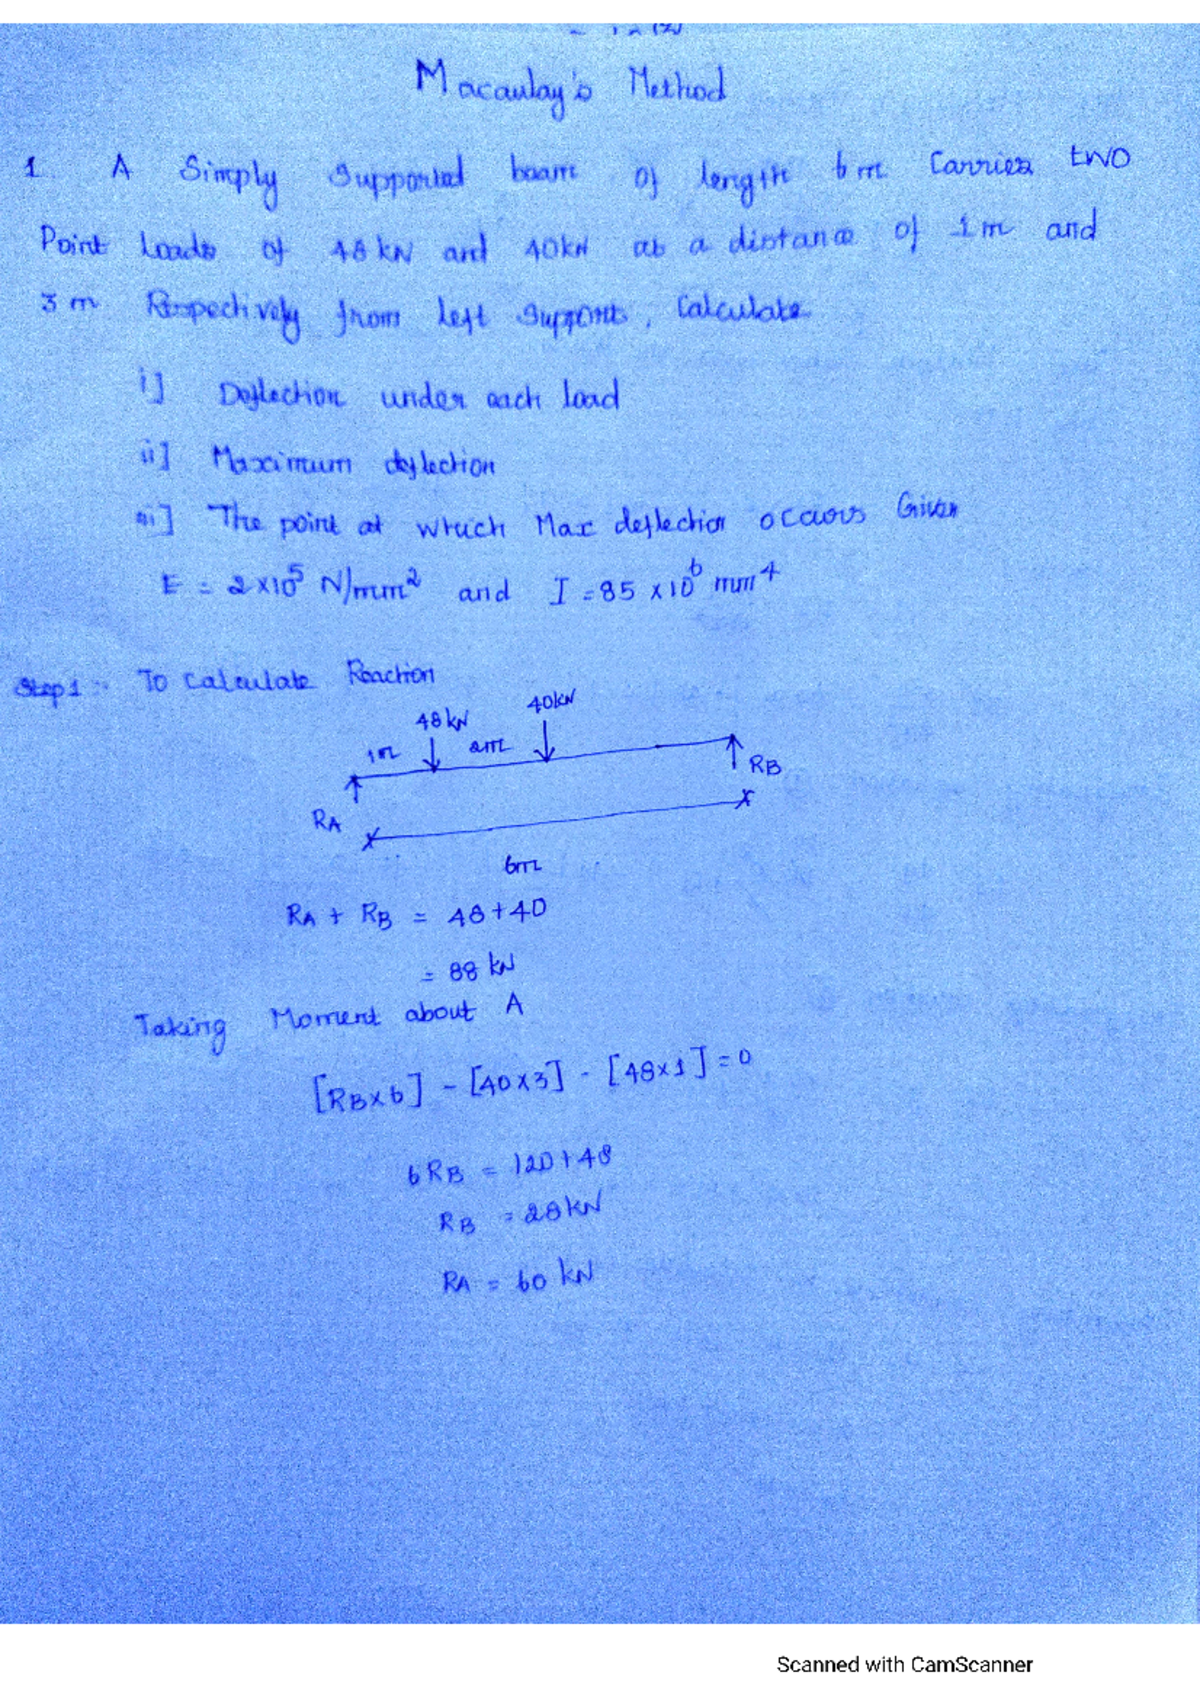 Macaulay's Method
1. A Simply Supported beam of length 6m Carries two
Point Loads of 48 kN and 40kN at a distance of 1m and
3m Respectively from left supports, Calculate
i] Deflection under each load
ii] Maximum deflection
iii] The point at which Max deflection occurs Given
E = 2×10⁵ N/mm² and I = 85 ×10⁶ mm⁴
Step1:- To Calculate Reaction
48kN 40kN
1m 2m
RA RB
6m
RA + RB = 48+40
= 88 kN
Taking Moment about A
[RB×6] - [40×3] - [48×1] = 0
6RB = 120+48
RB = 28kN
RA = 60 kN
Scanned with CamScanner